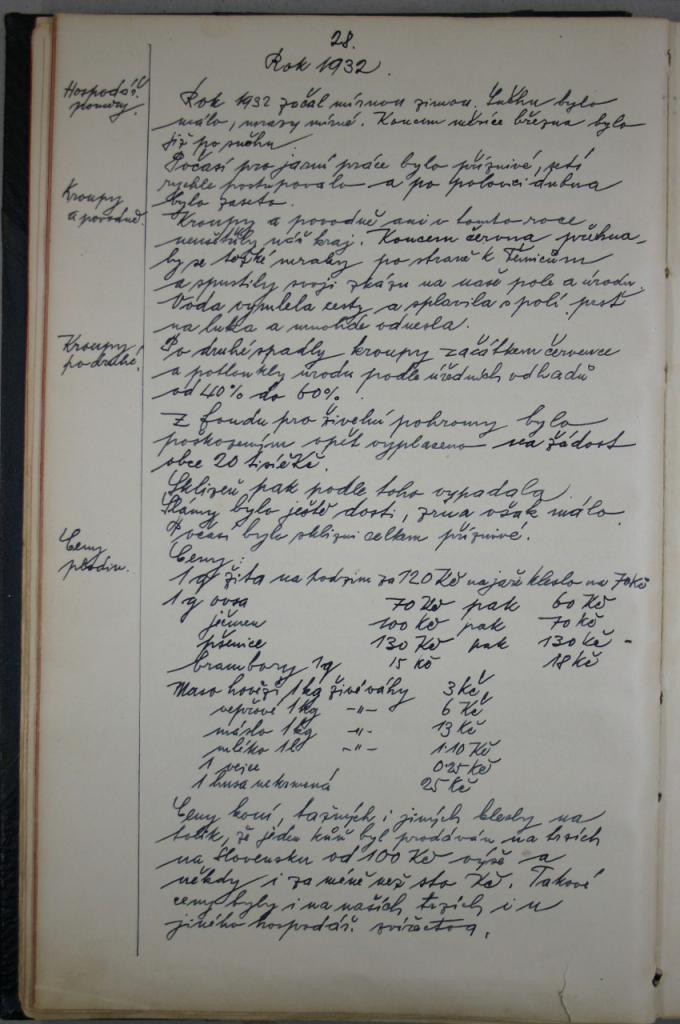 28.
Rok 1932.
Hospodář.
poměry.
Rok 1932 začal mírnou zimou. Sněhu bylo
málo, mrazy mírné. Koncem měsíce března bylo
již po sněhu.
Počasí pro jarní práce bylo příznivé, setí
rychle postupovalo a po polovici dubna
bylo zaseto.
Kroupy
a povodně.
Kroupy a povodně ani v tomto roce
neušetřily náš kraj. Koncem června přehna-
ly se těžké mraky po straně k
a spustily svoji zkázu na naše pole a úrodu.
Voda vymlela cesty a splavila s polí prsť
na luka a mnohde odnesla.
Kroupy
po druhé.
Po druhé spadly kroupy začátkem července
a potloukly úrodu podle úředních odhadů
od 40% do 60%.
Z fondu pro živelní pohromy bylo
poškozeným opět vyplaceno na žádost
obce 20 tisíc Kč.
Sklizeň pak podle toho vypadala.
Slámy bylo ještě dosti, zrna však málo.
Počasí bylo sklizni celkem příznivé.
Ceny
plodin.
Ceny:
1 q žita na podzim za 120 Kč na jaře kleslo na 70 Kč
1 q ovsa 70 Kč pak 60 Kč
ječmen 100 Kč pak 70 Kč
pšenice 130 Kč pak 130 Kč -
brambory 1 q 15 Kč 18 Kč
Maso hovězí 1 kg živé váhy 3 Kč
vepřové 1 kg -„- 6 Kč
máslo 1 kg -„- 13 Kč
mléko 1 l -„- 1·10 Kč
1 vejce 0·25 Kč
1 husa nekrmená 25 Kč
Ceny koní, tažných i jiných klesly na
tolik, že jeden kůň byl prodáván na trzích
na Slovensku od 100 Kč výše a
někdy i za méně než sto Kč. Takové
ceny byly i na našich trzích i u
jiného hospodář. zvířectva.